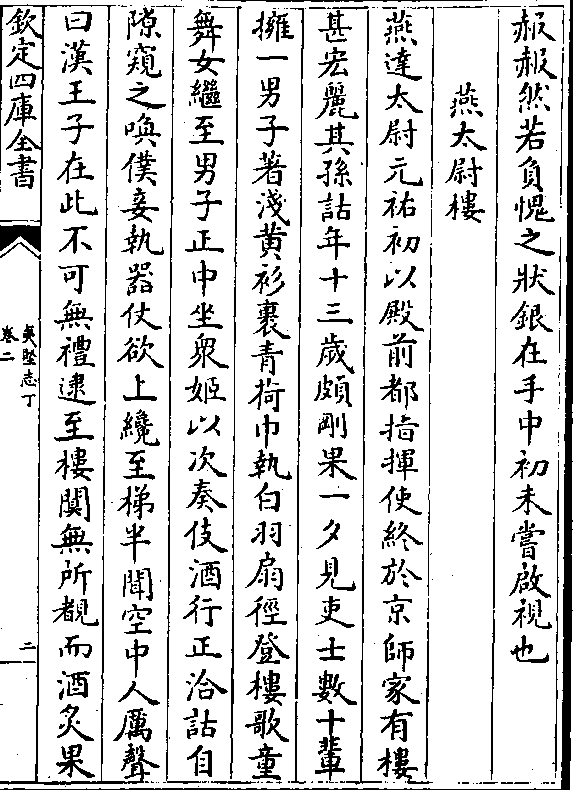 赧赧然若負愧之狀銀在手中初未嘗啟視也
燕太尉樓
燕達太尉元祐初以殿前都指揮使終於京師家有樓
甚宏麗其孫詁年十三歲頗剛果一夕見吏士數十輩
擁一男子著淺黄衫裹青荷巾執白羽扇徑登樓歌童
舞女繼至男子正中坐衆姬以次奏伎酒行正洽詁自
隙窺之喚僕妾執器仗欲上纔至梯半聞空中人厲聲
曰漢王子在此不可無禮逮至樓闃無所覩而酒炙果
欽定四庫全書
夷堅志丁
卷二
二